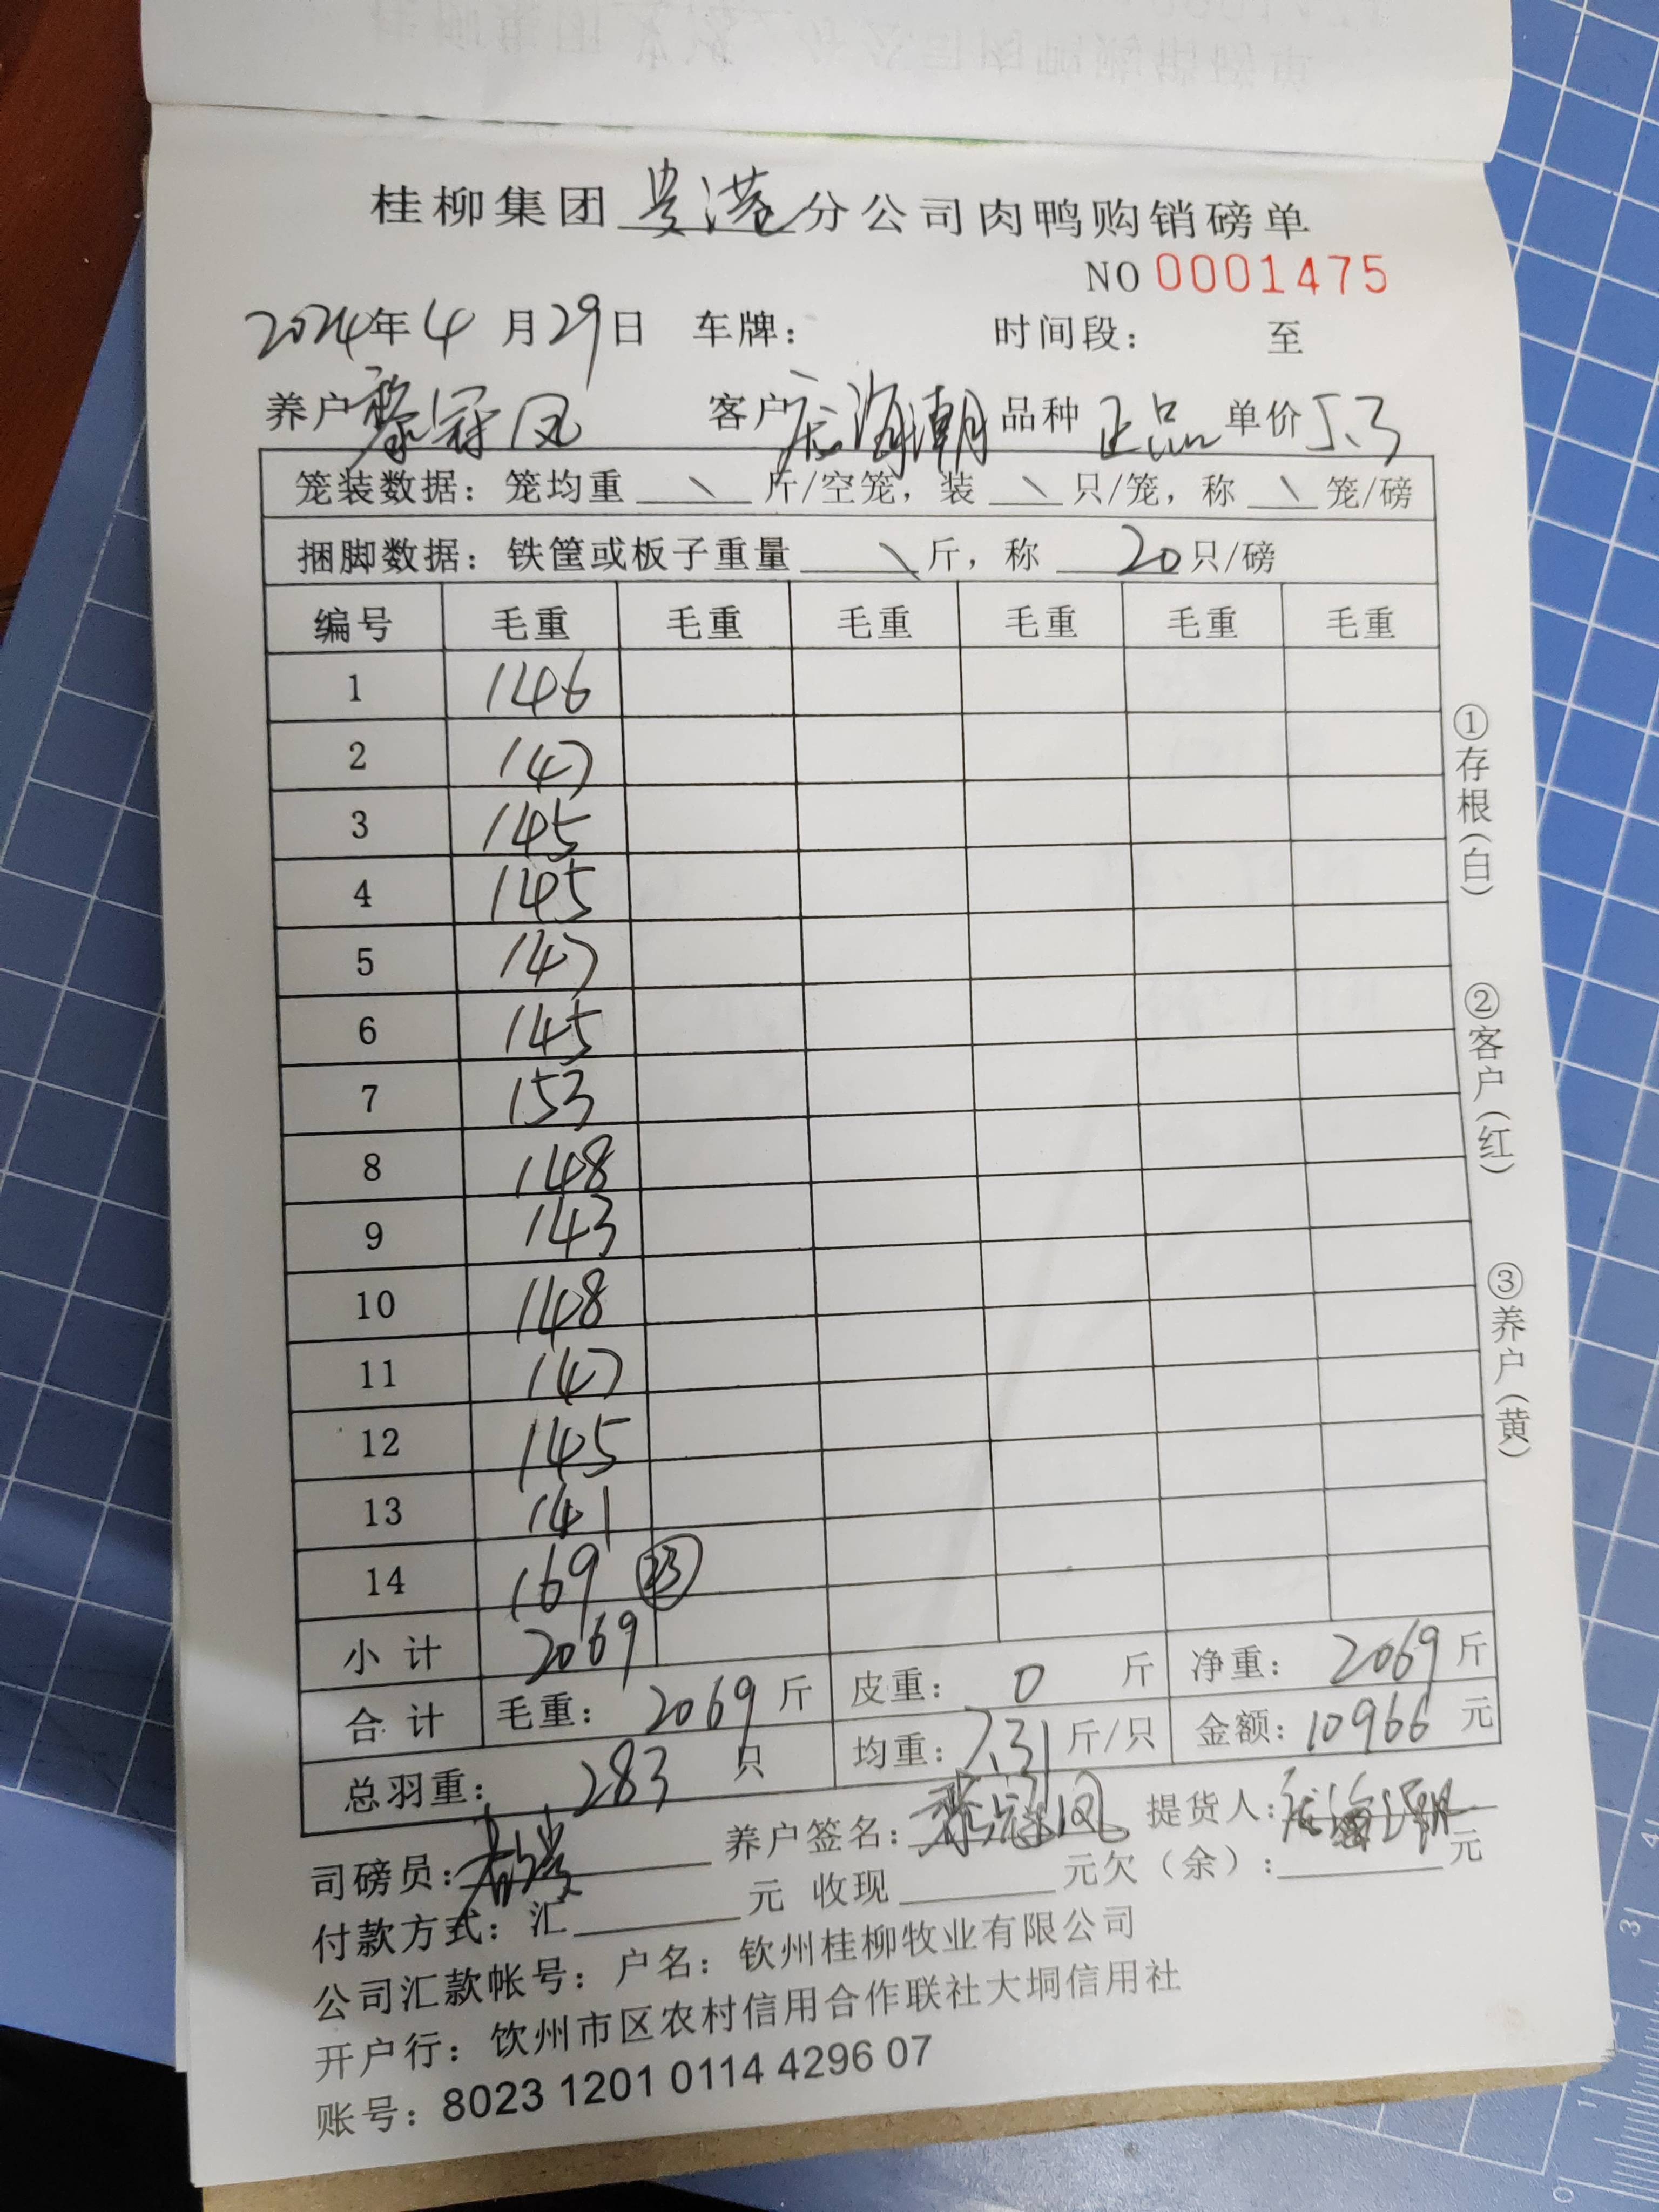 桂柳集团贵港分公司肉鸭购销磅单
NO 0001475
2024年4月29日 车牌: 时间段: 至
养户黎冠凤 客户 海潮 品种 正品 单价 5.3
笼装数据: 笼均重 \ 斤/空笼, 装 \ 只/笼, 称 \ 笼/磅
捆脚数据: 铁筐或板子重量 \ 斤, 称 20 只/磅
编号 毛重 毛重 毛重 毛重 毛重 毛重
1 146
2 147
3 145
4 145
5 147
6 145
7 153
8 148
9 143
10 148
11 147
12 145
13 141
14 169 23
小计 2069
合计 毛重: 2069 斤 皮重: 0 斤 净重: 2069 斤
总羽重: 283 只 均重: 7.31 斤/只 金额: 10966 元
司磅员: 养户签名: 黎冠凤 提货人:
付款方式: 汇 元 收现 元欠(余): 元
公司汇款帐号: 户名: 钦州桂柳牧业有限公司
开户行: 钦州市区农村信用合作联社大垌信用社
账号: 8023 1201 0114 4296 07
①存根(白) ②客户(红) ③养户(黄)